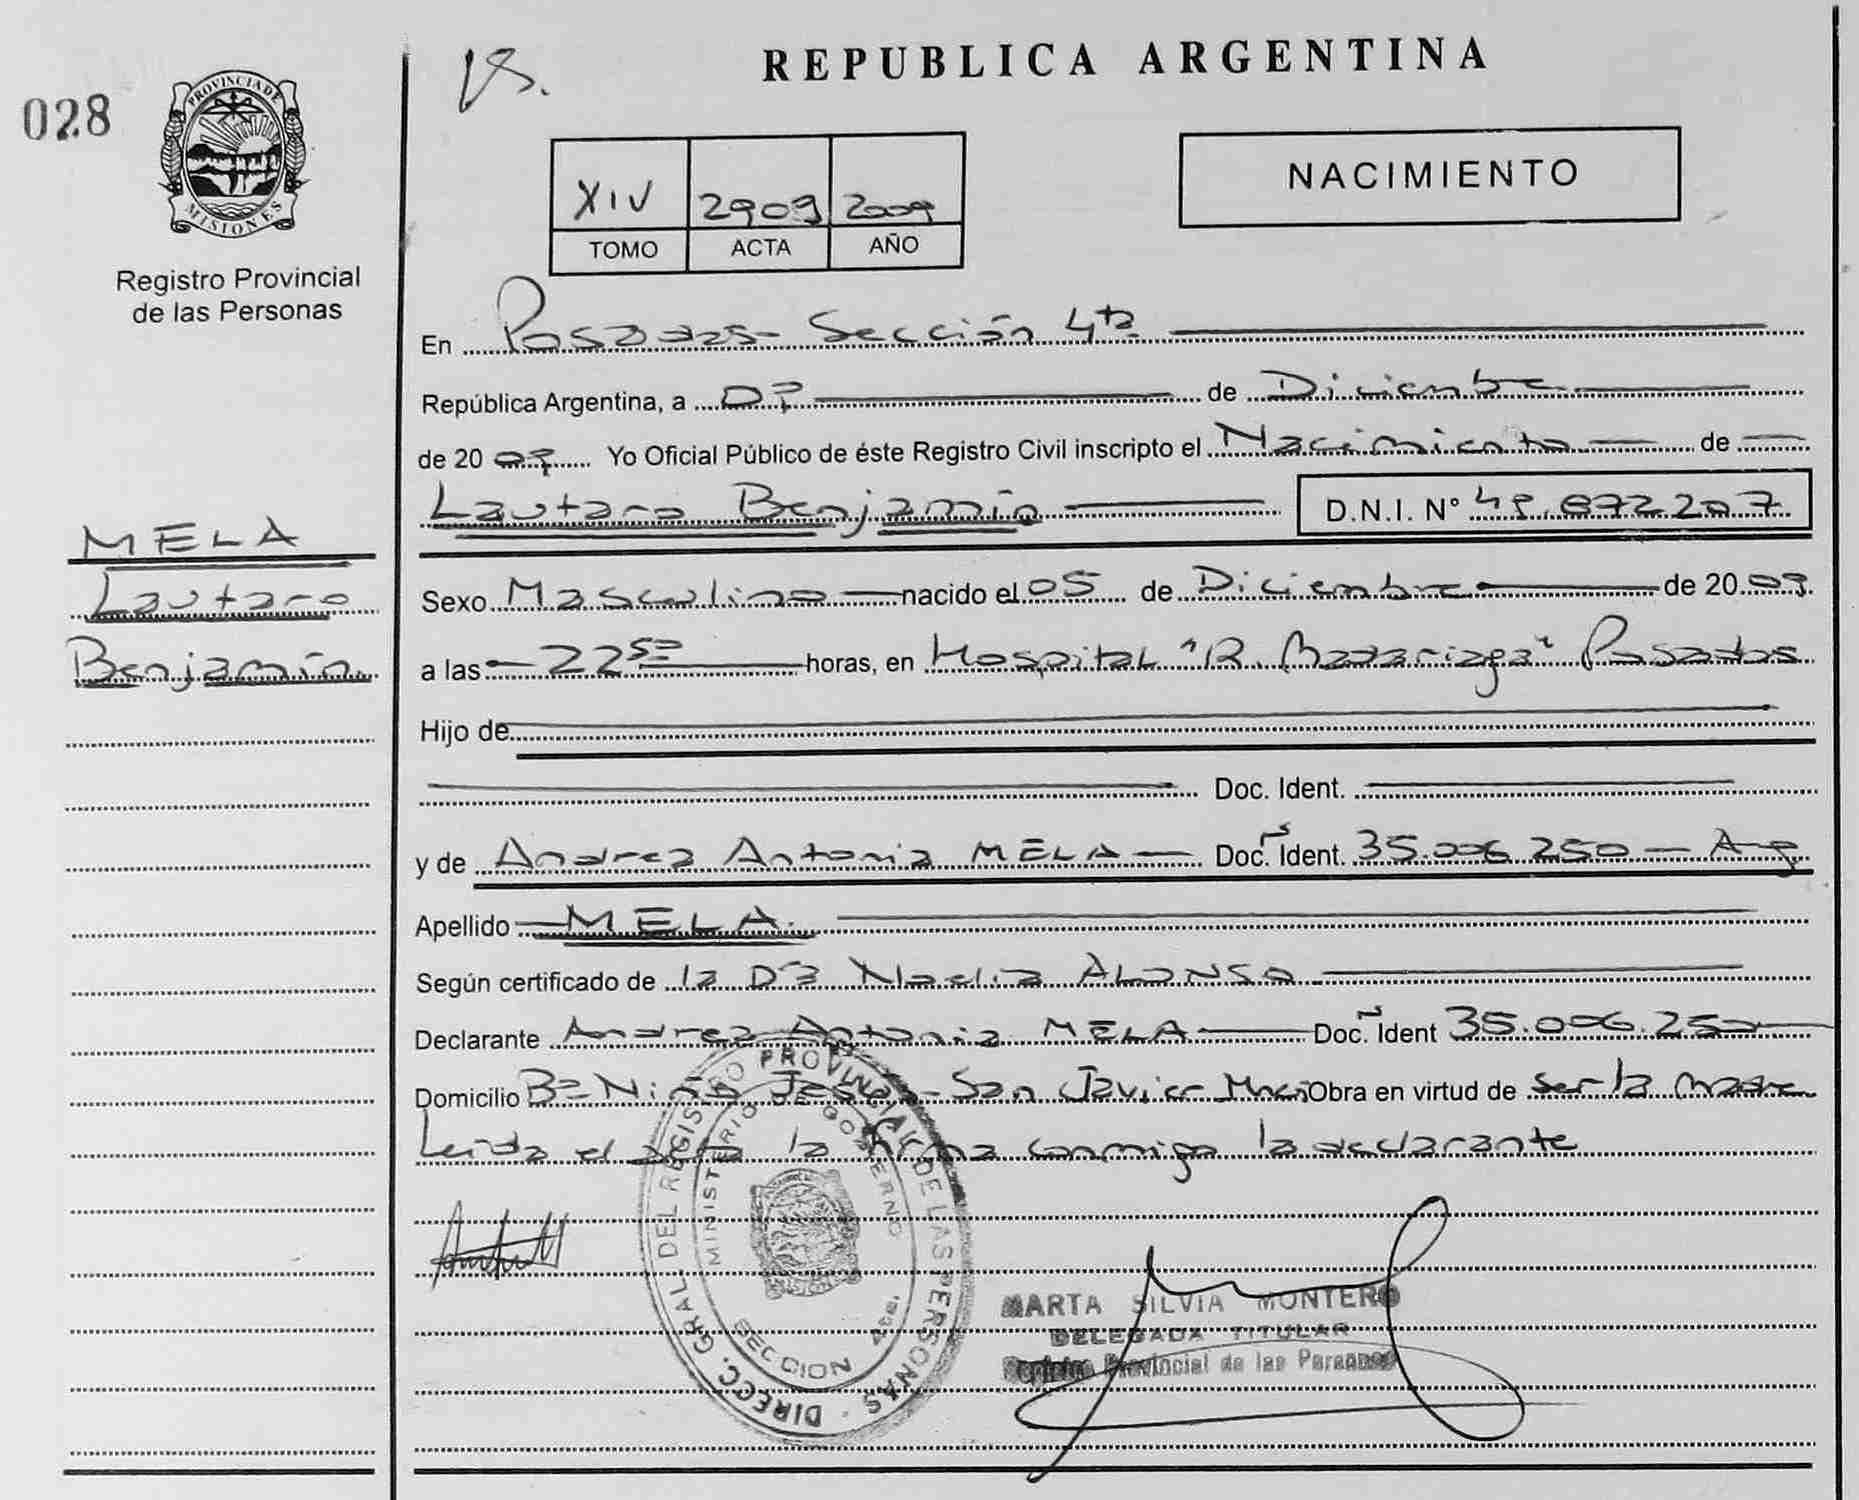 REPUBLICA ARGENTINA
028
PROVINCIA DE
MISIONES
Registro Provincial
de las Personas
XIV 2909 2009
TOMO ACTA AÑO
NACIMIENTO
En Posadas - Sección 4ta
República Argentina, a 07 de Diciembre
de 20 09 Yo Oficial Público de éste Registro Civil inscripto el Nacimiento de
Lautaro Benjamín D.N.I. Nº 49.872207
MELA
Lautaro
Benjamín
Sexo Masculino nacido el 05 de Diciembre de 20 09
a las 2250 horas, en Hospital "R. Madariaga" Posadas
Hijo de
Doc. Ident.
y de Andrea Antonia MELA Doc. Ident. 35.006.250 - Arg
Apellido MELA.
Según certificado de la Dra Noelia ALONSO
Declarante Andrea Antonia MELA Doc. Ident 35.006.250
Domicilio Bº Niño Jesús - San Javier Mnes Obra en virtud de ser la madre
Leída el acta la firma conmigo la declarante
DIRECC. GRAL DEL REGISTRO PROVINCIAL DE LAS PERSONAS
MINISTERIO GOBIERNO
SECCION 4ta.
MARTA SILVIA MONTERO
DELEGADA TITULAR
Registro Provincial de las Personas